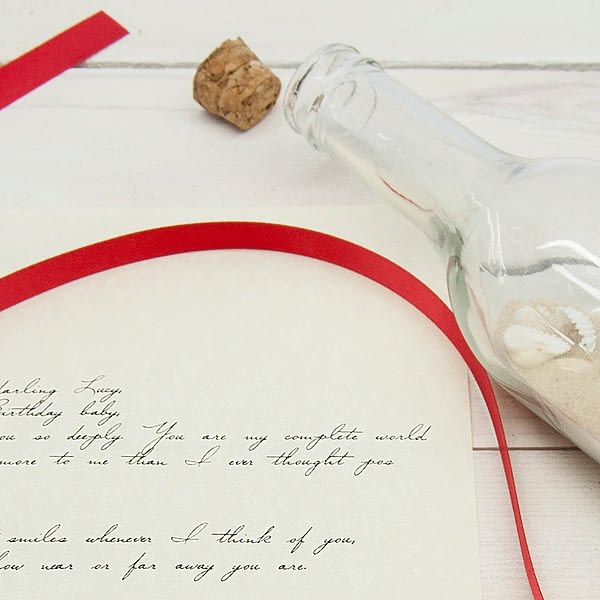 darling Lucy,
Birthday baby,
you so deeply. You are my complete world
more to me than I ever thought pos
smiles whenever I think of you,
how near or far away you are.